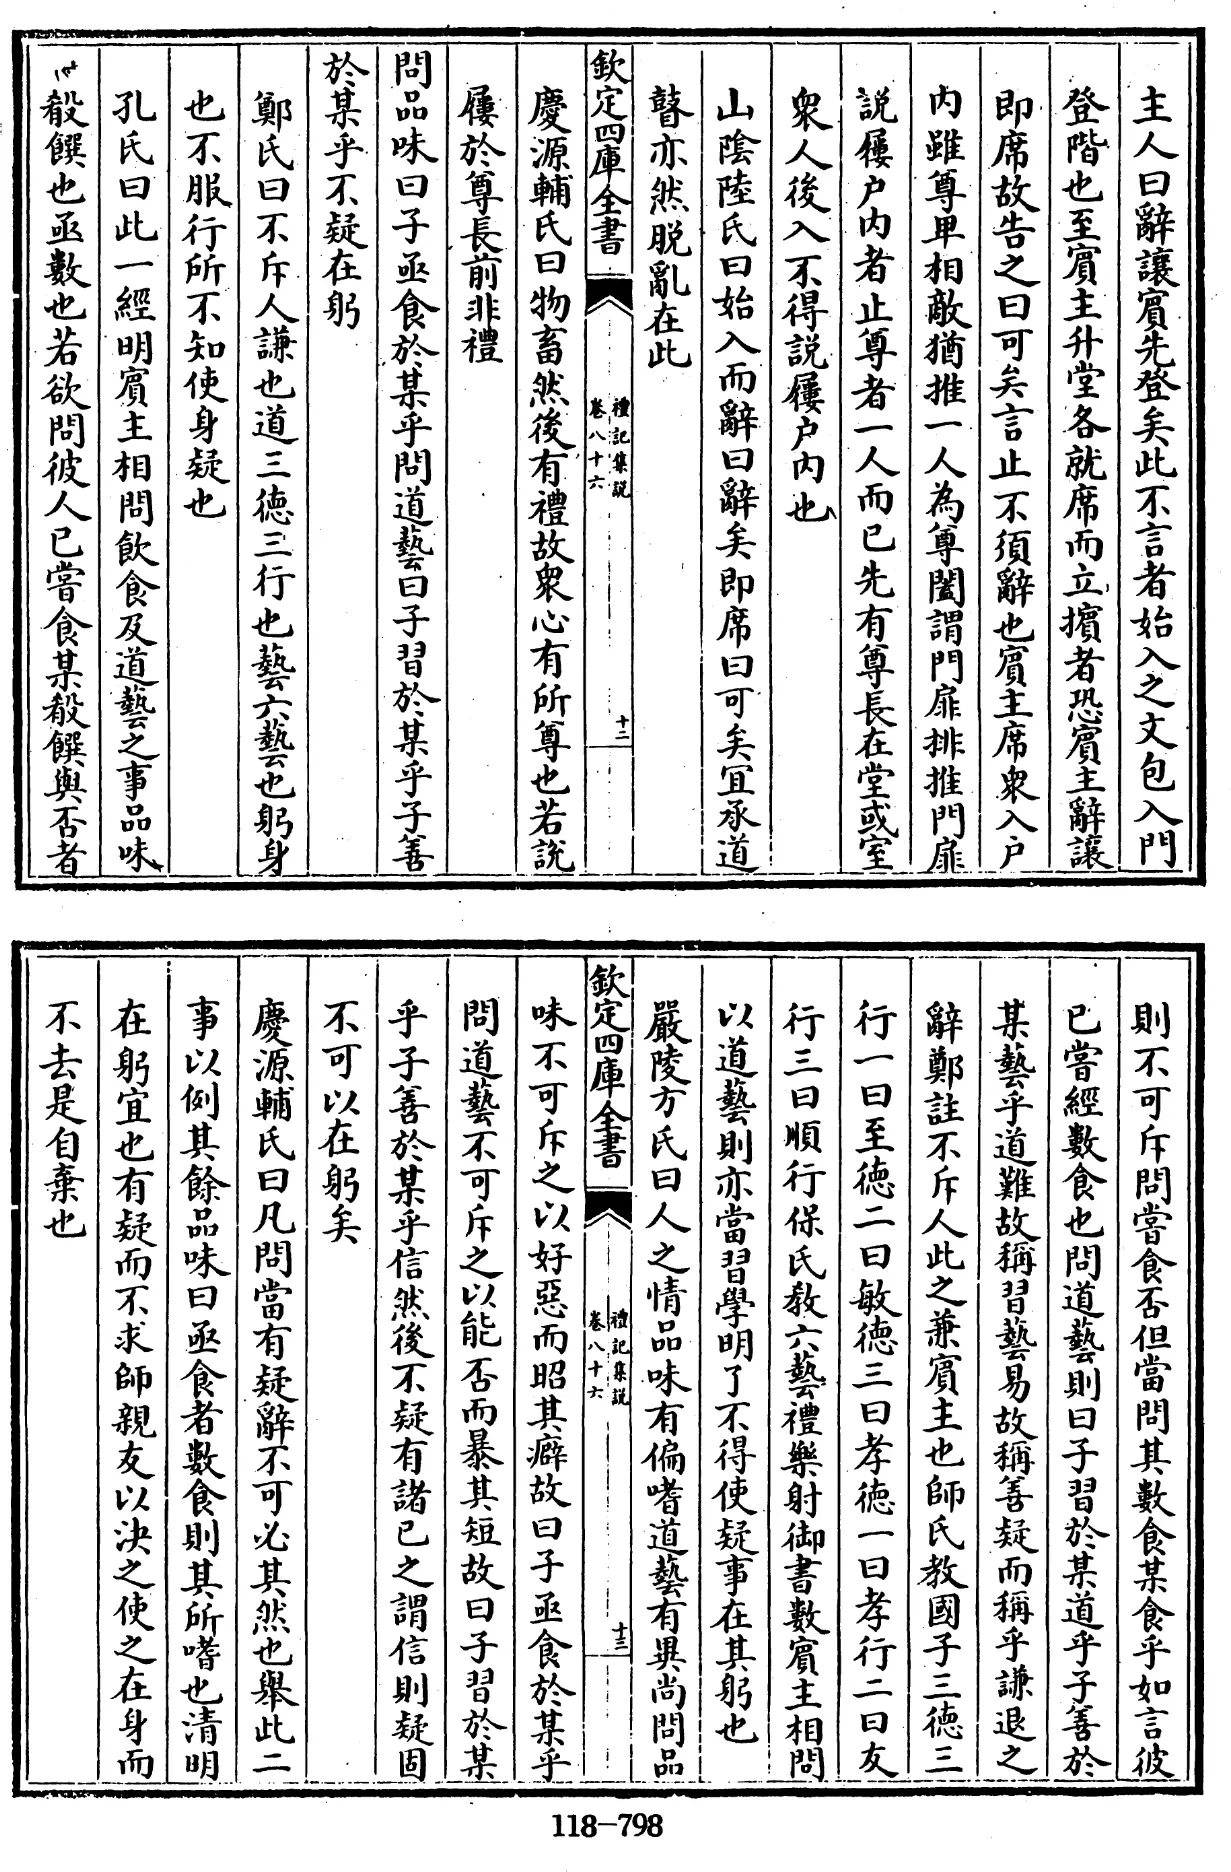 主人曰辭讓賔先登矣此不言者始入之文包入門
登階也至賔主升堂各就席而立擯者恐賔主辭讓
即席故告之曰可矣言止不須辭也賔主席衆入户
内雖尊卑相敵猶推一人為尊闔謂門扉排推門扉
説屨户内者止尊者一人而已先有尊長在堂或室
衆人後入不得説屨户内也
山陰陸氏曰始入而辭曰辭矣即席曰可矣宜承道
瞽亦然脱亂在此
欽定四庫全書
禮記集説
卷八十六
十二
慶源輔氏曰物畜然後有禮故衆心有所尊也若説
屨於尊長前非禮
問品味曰子亟食於某乎問道藝曰子習於某乎子善
於某乎不疑在躬
鄭氏曰不斥人謙也道三德三行也藝六藝也躬身
也不服行所不知使身疑也
孔氏曰此一經明賔主相問飲食及道藝之事品味
殽饌也亟數也若欲問彼人已嘗食某殽饌與否者
則不可斥問嘗食否但當問其數食某食乎如言彼
已嘗經數食也問道藝則曰子習於某道乎子善於
某藝乎道難故稱習藝易故稱善疑而稱乎謙退之
辭鄭註不斥人此之兼賔主也師氏教國子三德三
行一曰至德二曰敏德三曰孝德一曰孝行二曰友
行三曰順行保氏教六藝禮樂射御書數賔主相問
以道藝則亦當習學明了不得使疑事在其躬也
嚴陵方氏曰人之情品味有偏嗜道藝有異尚問品
欽定四庫全書
禮記集説
卷八十六
十三
味不可斥之以好惡而昭其癖故曰子亟食於某乎
問道藝不可斥之以能否而暴其短故曰子習於某
乎子善於某乎信然後不疑有諸已之謂信則疑固
不可以在躬矣
慶源輔氏曰凡問當有疑辭不可必其然也舉此二
事以例其餘品味曰亟食者數食則其所嗜也清明
在躬宜也有疑而不求師親友以決之使之在身而
不去是自棄也
118-798